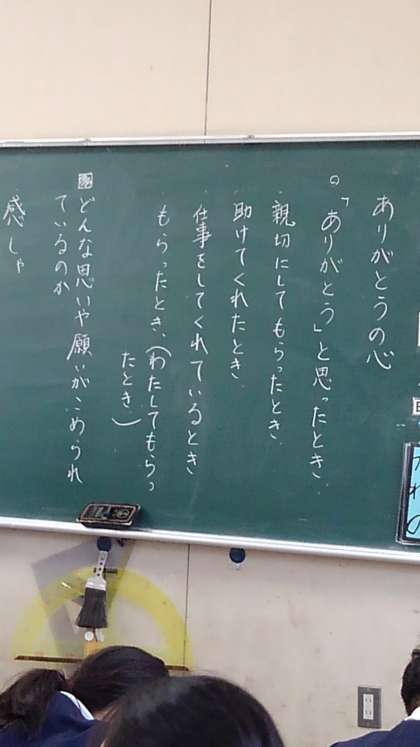 ありがとうの心
「ありがとう」と思ったとき
・親切にしてもらったとき
・助けてくれたとき
・仕事をしてくれているとき
・もらったとき(わたしてもらっ
たとき)
どんな思いや願いがこめられ
ているのか
感しゃ